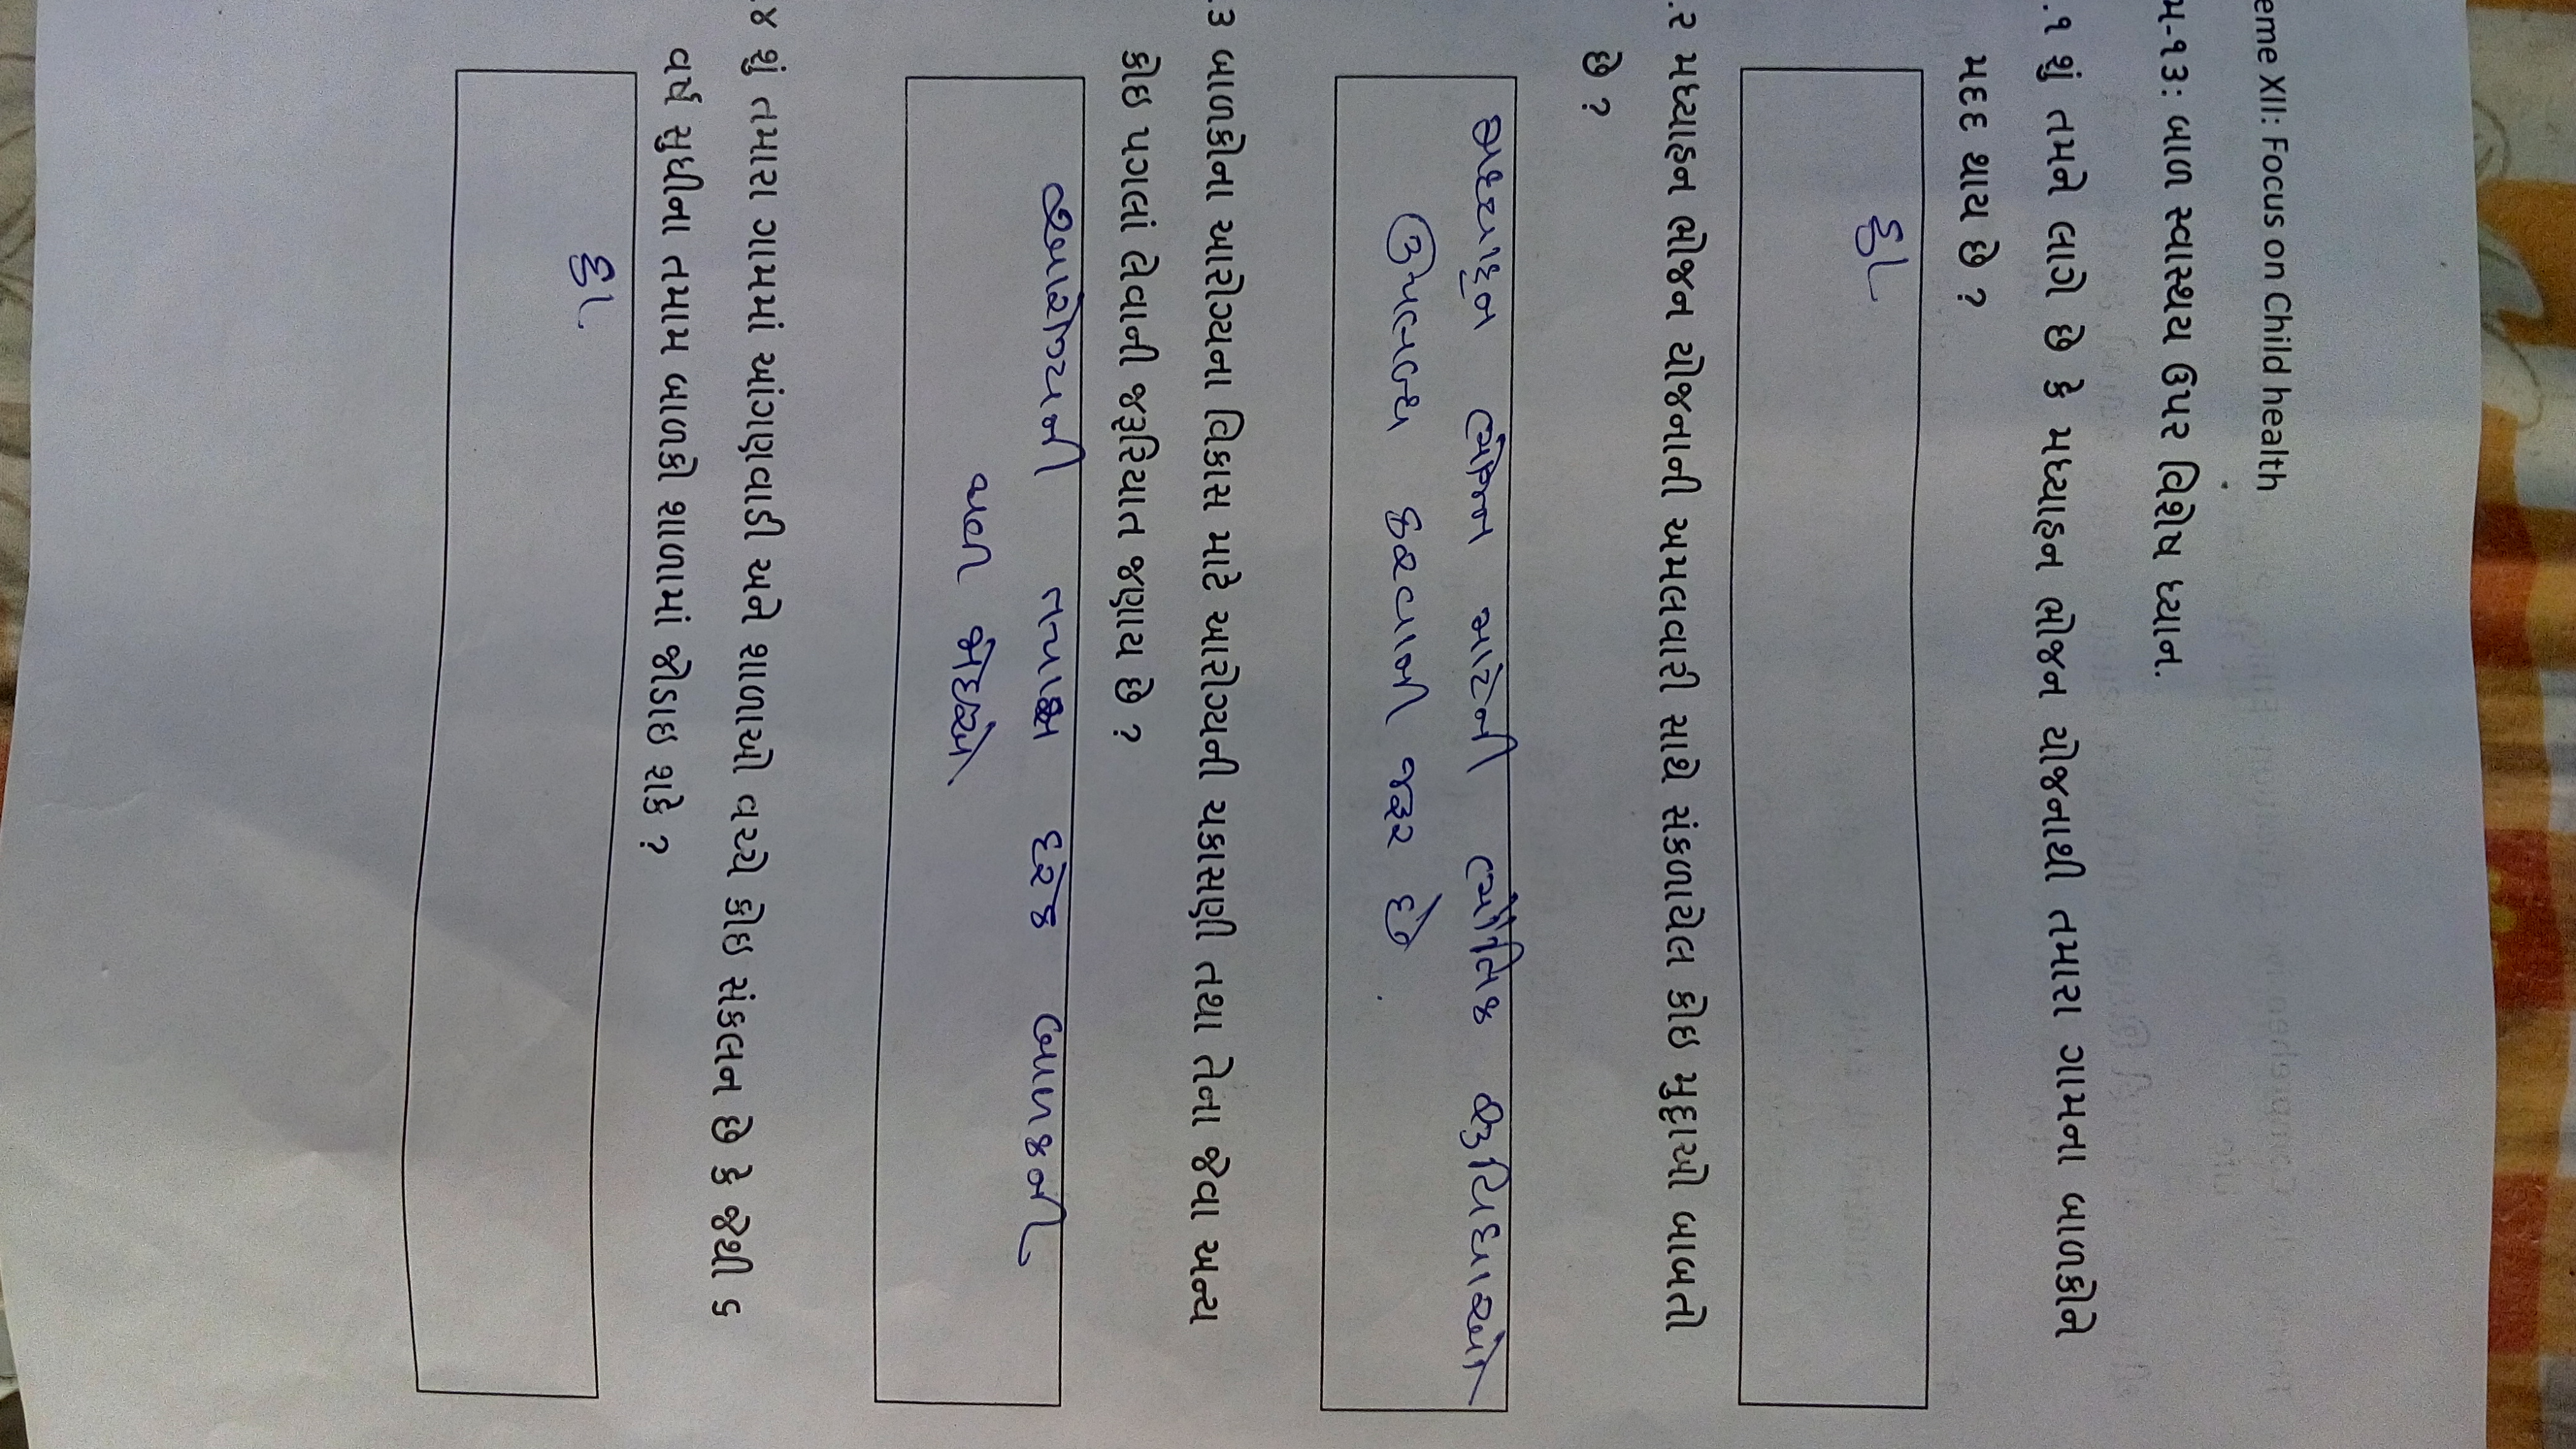 eme XII: Focus on Child health
મ-૧૩: બાળ સ્વાસ્થય ઉપર વિશેષ ધ્યાન.
.૧ શું તમને લાગે છે કે મધ્યાહન ભોજન યોજનાથી તમારા ગામના બાળકોને
મદદ થાય છે ?
હા.
.૨ મધ્યાહન ભોજન યોજનાની અમલવારી સાથે સંકળાયેલ કોઇ મુદ્દાઓ બાબતો
છે ?
મધ્યાહન ભોજન માટેની ભૌતિક સુવિધાઓ
ઉપલબ્ધ કરવાની જરૂર છે.
.૩ બાળકોના આરોગ્યના વિકાસ માટે આરોગ્યની ચકાસણી તથા તેના જેવા અન્ય
કોઇ પગલાં લેવાની જરૂરિયાત જણાય છે ?
આરોગ્યની તપાસ દરેક બાળકની
થવી જોઇએ
.૪ શું તમારા ગામમાં આંગણવાડી અને શાળાઓ વચ્ચે કોઇ સંકલન છે કે જેથી ૬
વર્ષ સુધીના તમામ બાળકો શાળામાં જોડાઇ શકે ?
હા.